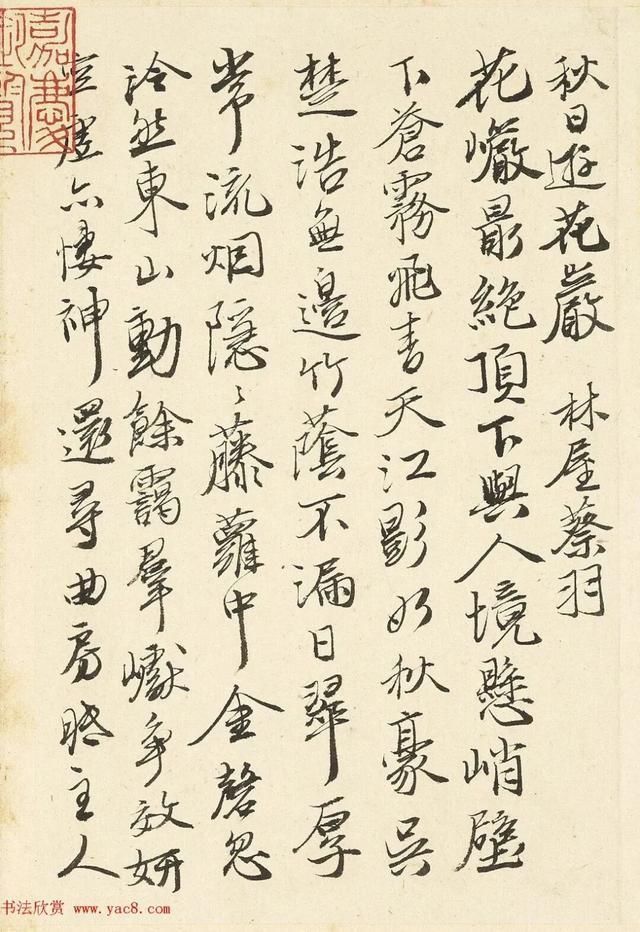 秋日遊花巖 林屋蔡羽
花巖最絶頂下與人境懸峭壁
下蒼霧飛青天江影如秋豪吳
楚浩無邊竹蔭不漏日翠厚
常流烟隱〻藤蘿中金磬忽
泠然東山動餘靄羣巘爭效妍
亦悽神還尋曲房眠主人
嘉慶
书法欣赏 www.yac8.com